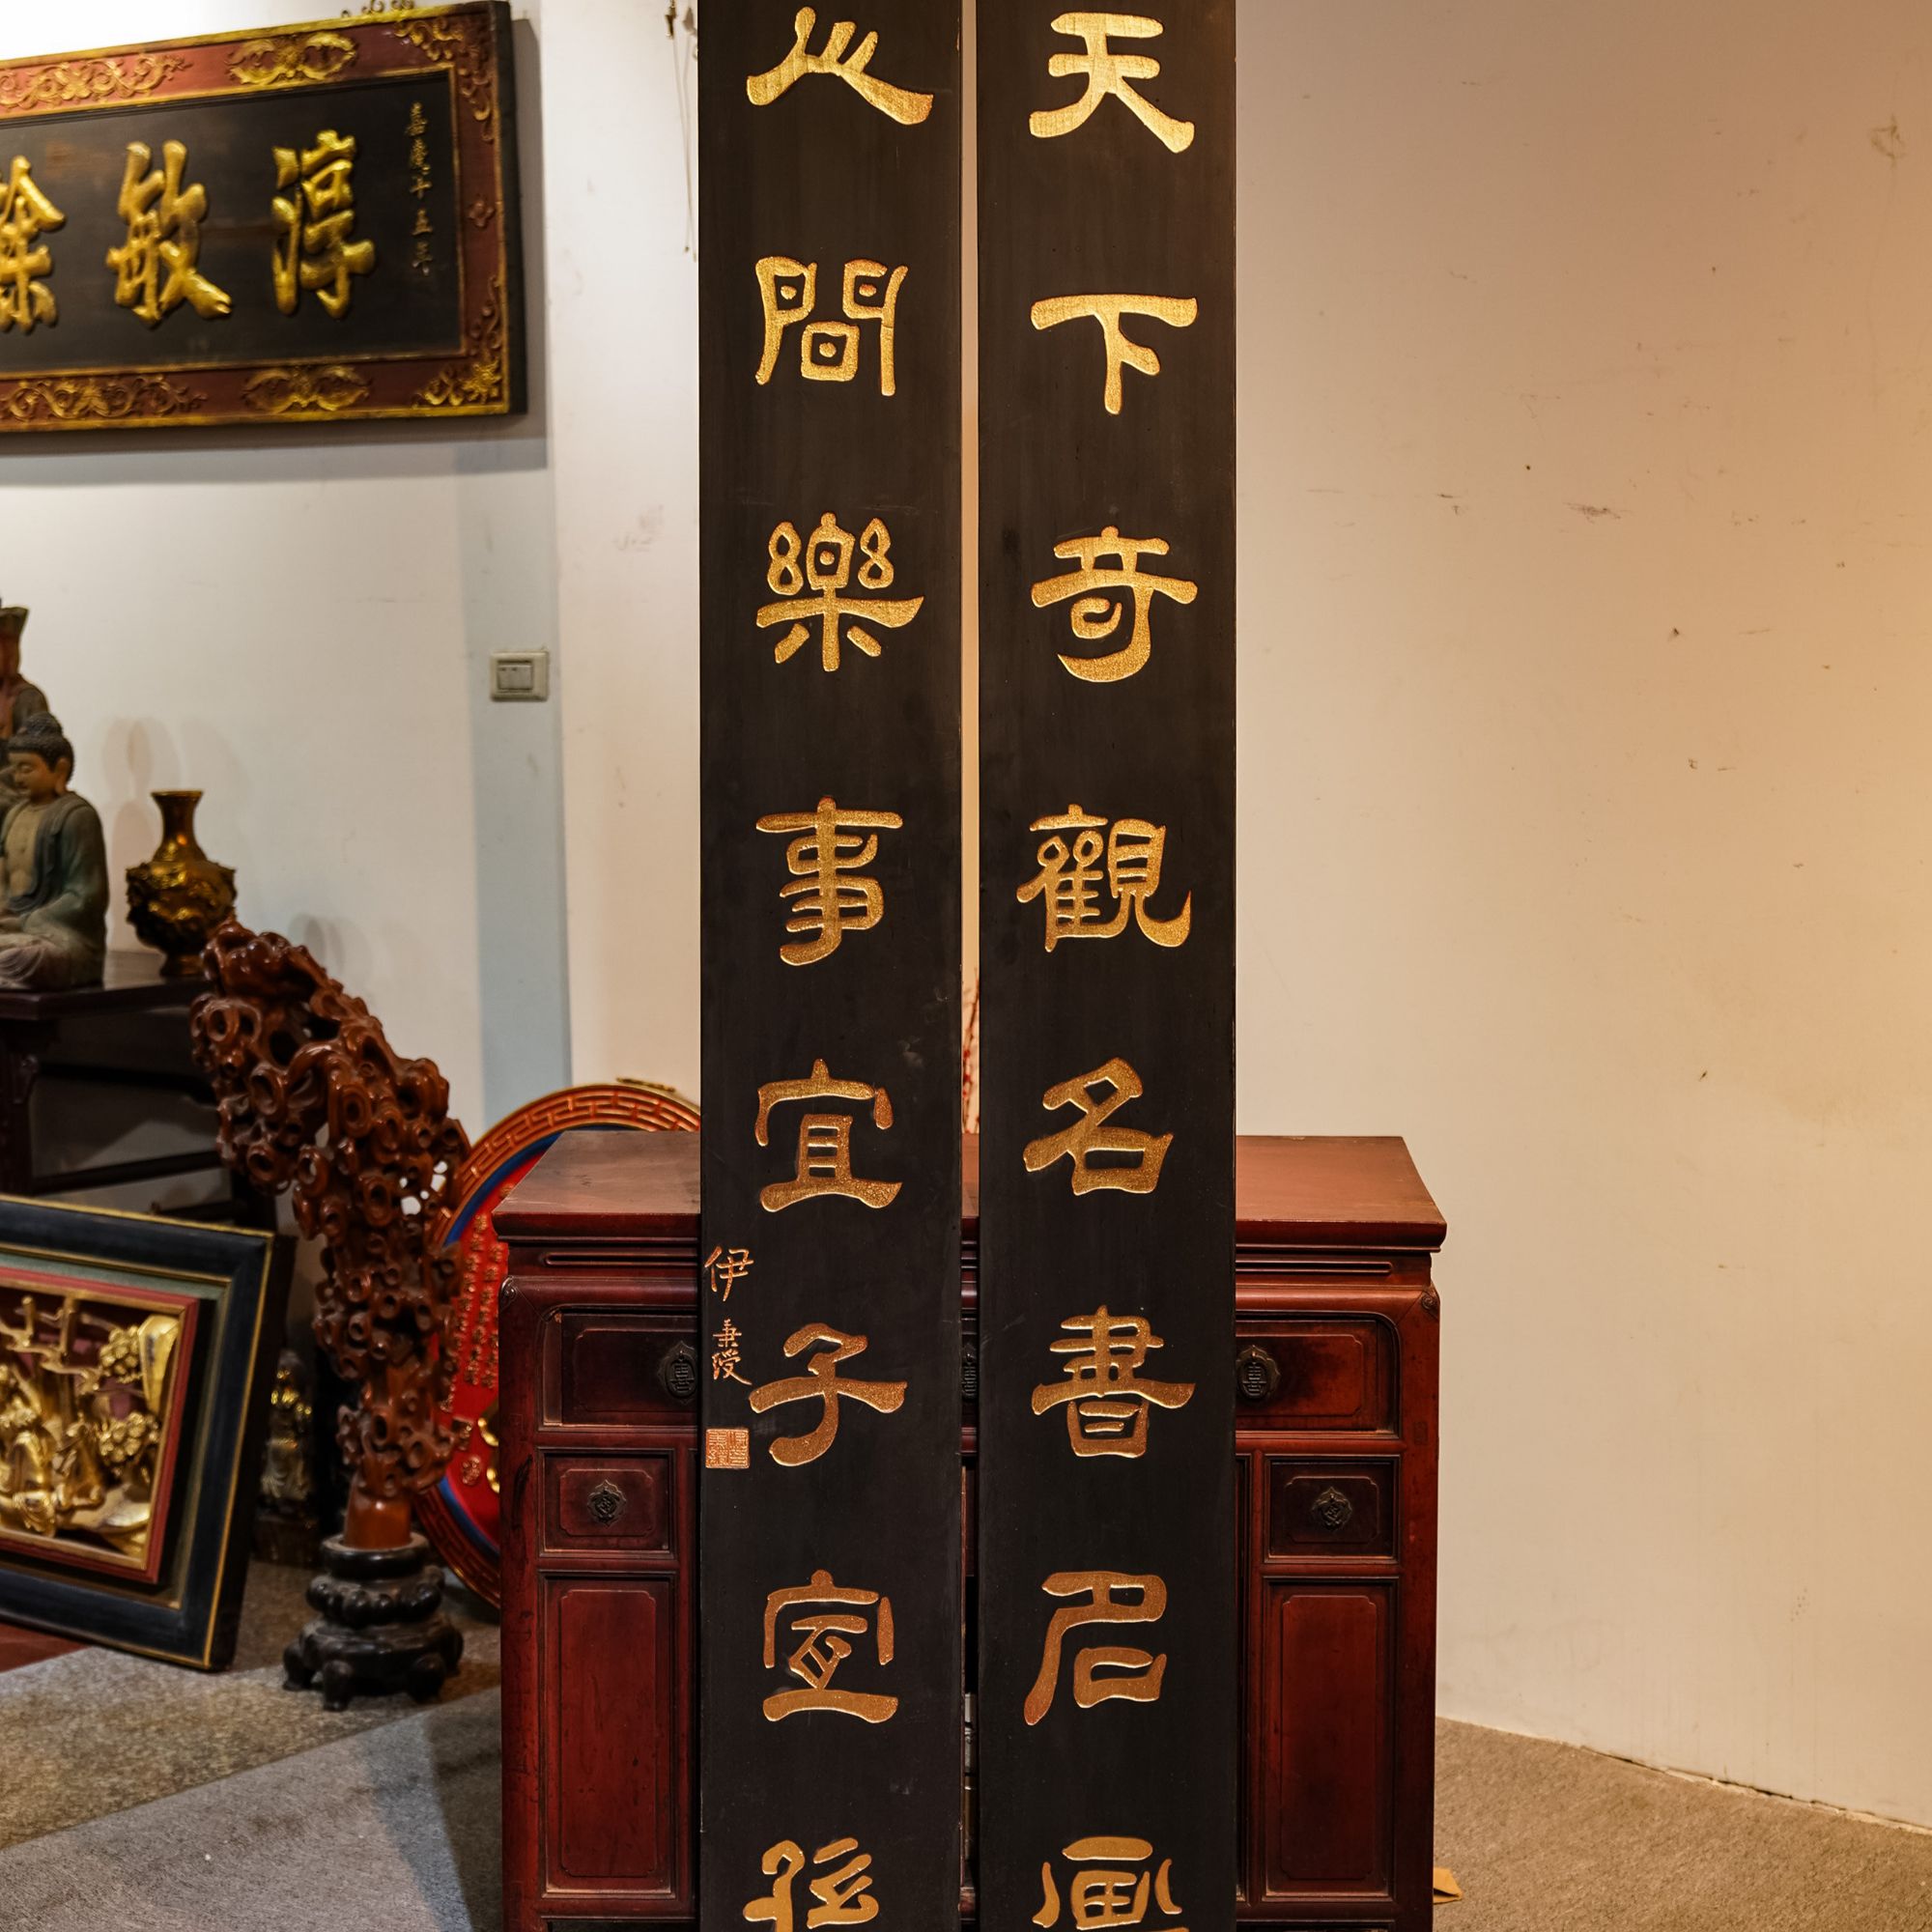 天下奇觀名書名画
人間樂事宜子宜孫
伊秉綬
嘉慶十五年
淳敏